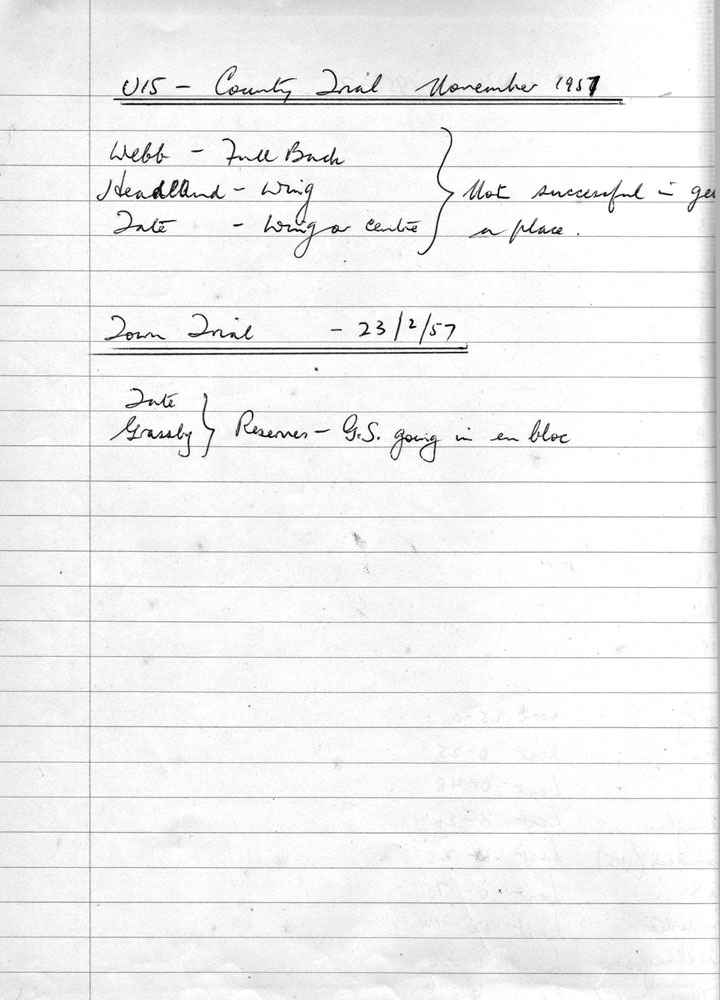 U15 - County Trial November 1957
Webb - Full Back
Headland - Wing
Tate - Wing or centre
Not successful in
a place.
Town Trial - 23/2/57
Tate
Grassby
Reserves - G.S. going in en bloc